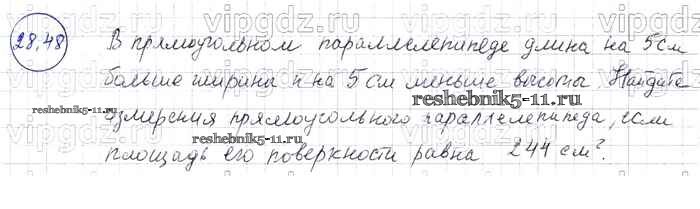 vipgdz.ru vipgdz.ru vipgdz.ru vipgdz.ru
28.48 В прямоугольном параллелепипеде длина на 5 см
больше ширины и на 5 см меньше высоты. Найдите
reshebnik5-11.ru
reshebnik5-11.ru
измерения прямоугольного параллелепипеда, если
reshebnik5-11.ru
площадь его поверхности равна 244 см².